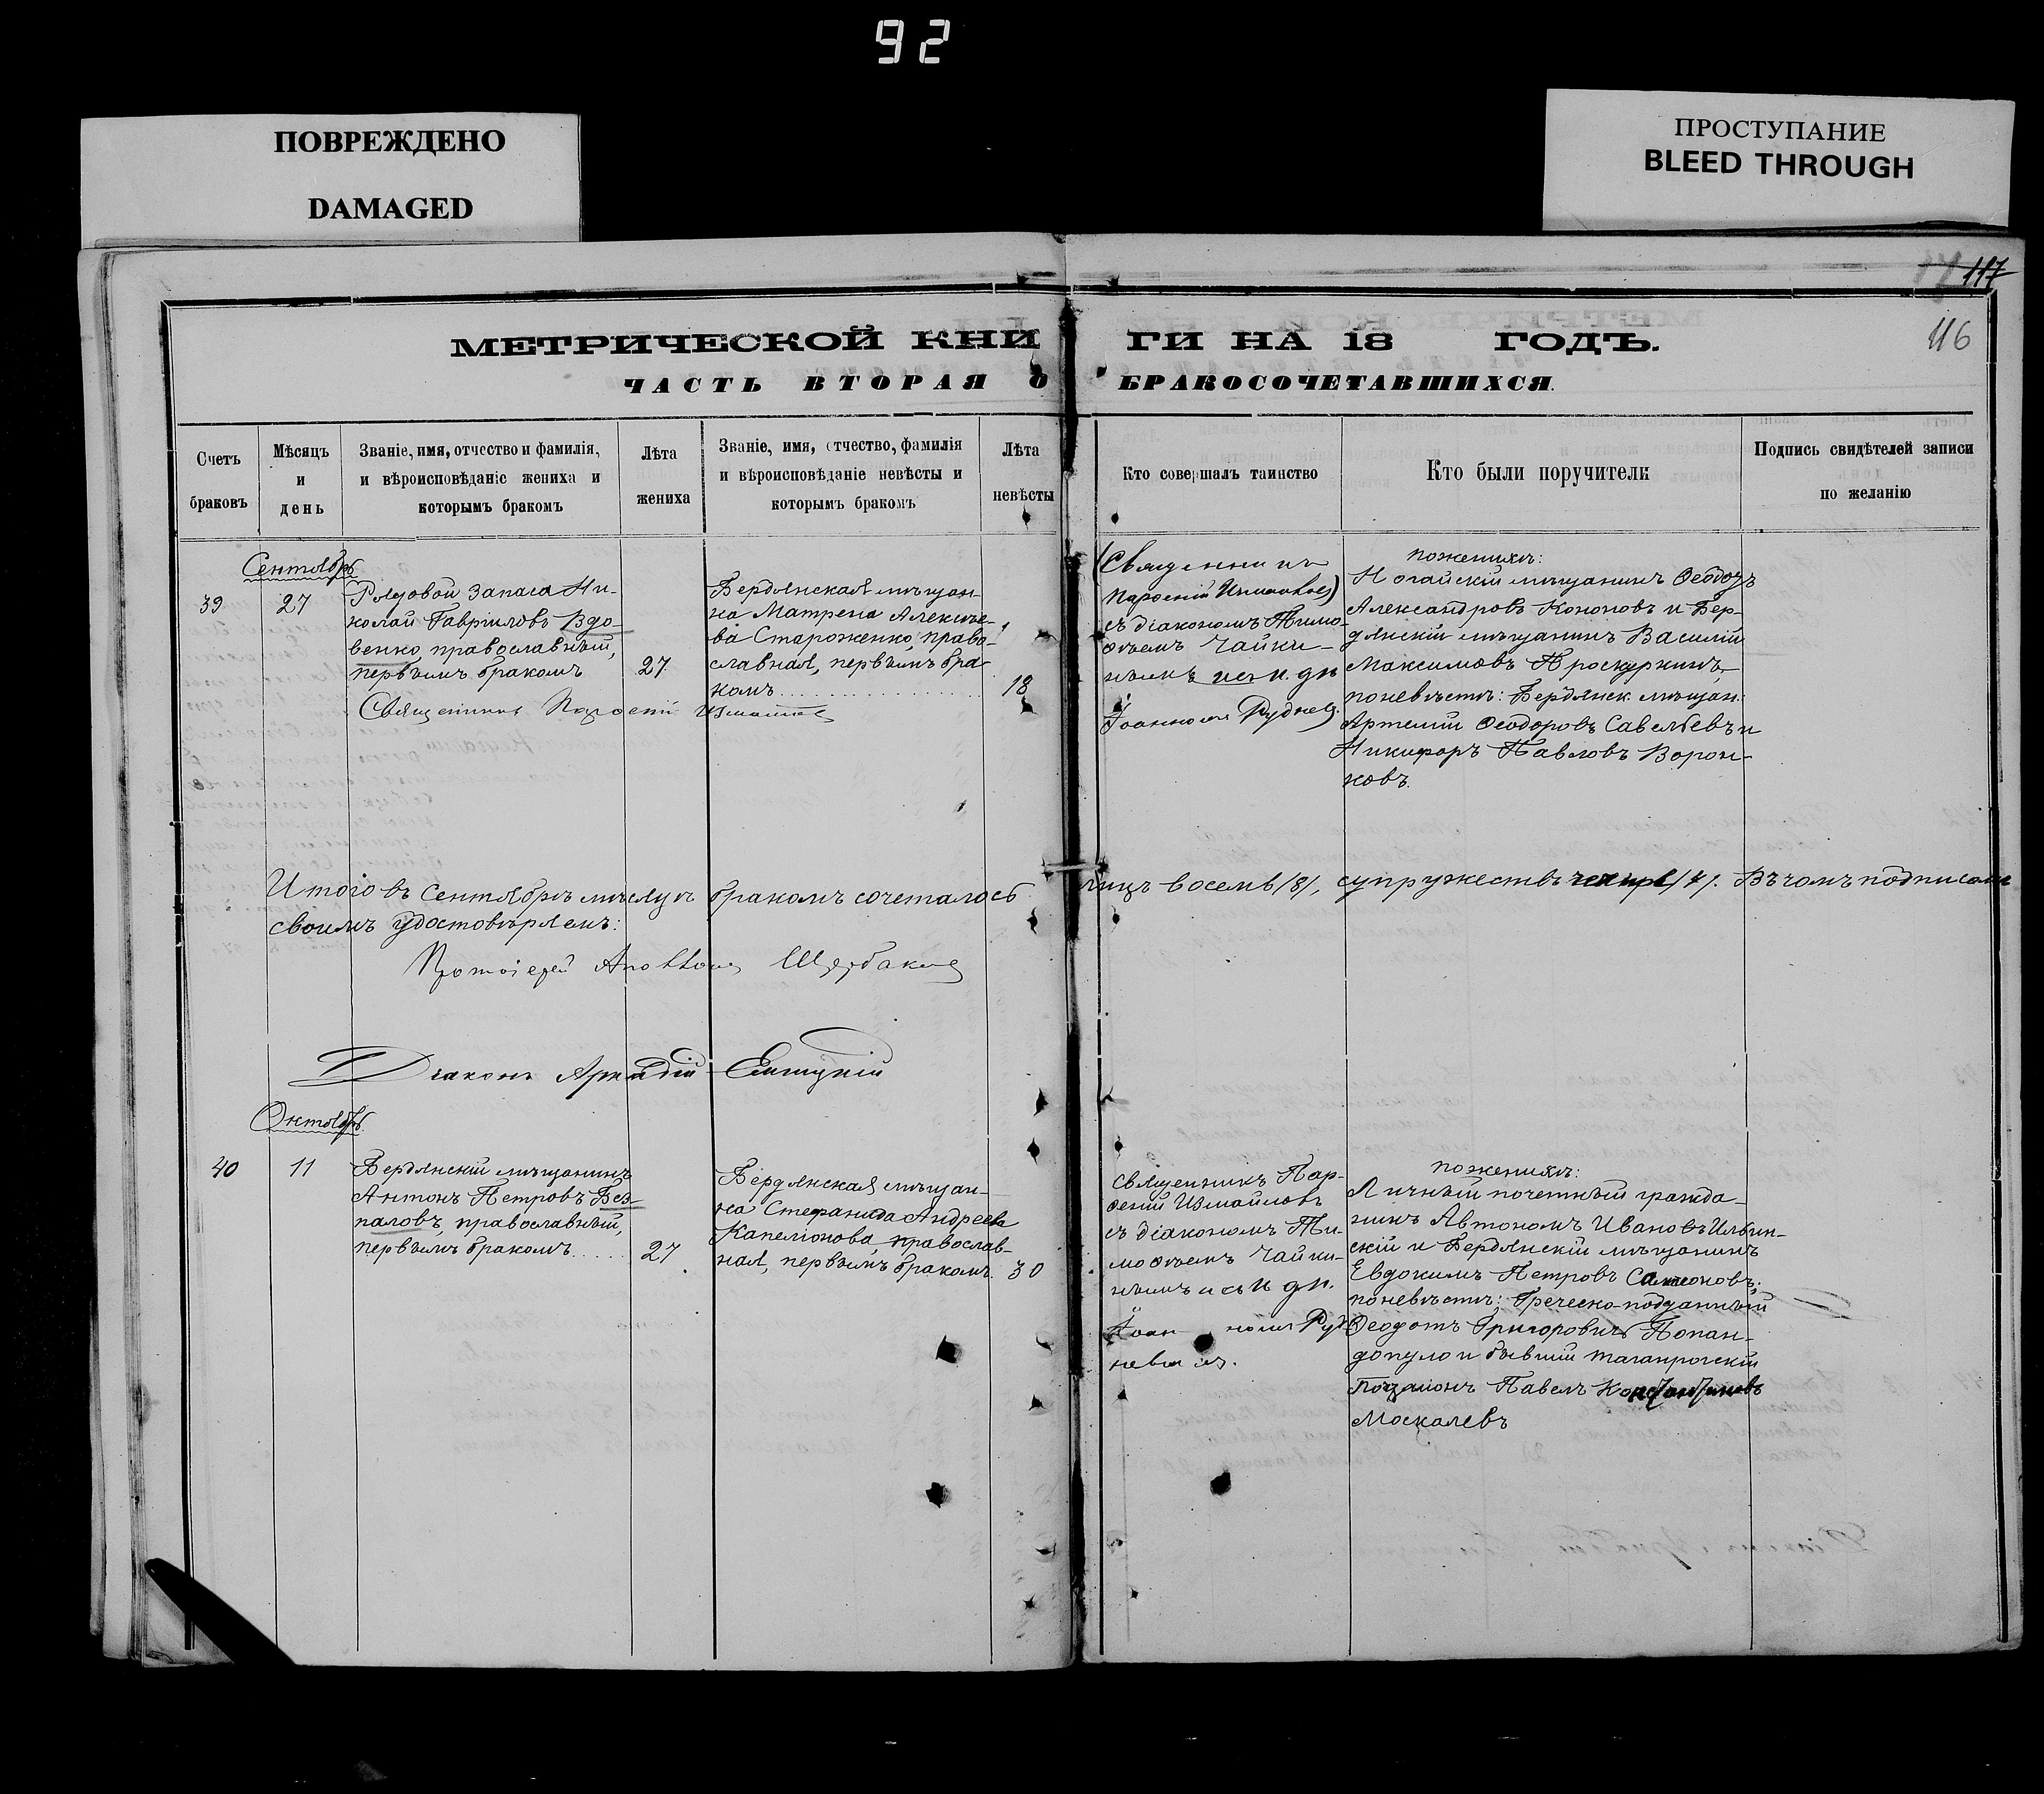 92
ПОВРЕЖДЕНО
DAMAGED
ПРОСТУПАНИЕ
BLEED THROUGH
117
116
МЕТРИЧЕСКОЙ КНИ ГИ НА 18 ГОДЪ.
ЧАСТЬ ВТОРАЯ О БРАКОСОЧЕТАВШИХСЯ.
Счетъ
браковъ
Мѣсяцъ
и
день
Званіе, имя, отчество и фамилія,
и вѣроисповѣданіе жениха и
которымъ бракомъ
Лѣта
жениха
Званіе, имя, отчество, фамилія
и вѣроисповѣданіе невѣсты и
которымъ бракомъ
Лѣта
невѣсты
Кто совершалъ таинство
Кто были поручители
Подпись свидѣтелей записи
по желанію
Сентябрь
39
27
Рядовой запаса Ни-
колай Гавриловъ Вдо-
венко, православный,
первымъ бракомъ
27
Бердянская мѣщан-
ка Матрена Алексѣе-
ва Стороженко, право-
славная, первымъ бра-
комъ
18
Священникъ
Парѳеній Измайловъ
съ діакономъ Тимо-
ѳеемъ Чайки-
нымъ и и. д. п.
Іоанномъ Рудне
пожених:
Ногайскій мѣщанинъ Ѳеодоръ
Александровъ Кононовъ и Бер-
дянскій мѣщанинъ Василій
Максимовъ Проскуркинъ,
по невѣстѣ: Бердянск. мѣщан:
Артемій Ѳеодоровъ Савельевъ и
Никифоръ Павловъ Ворон-
ковъ.
Священникъ Парѳеній Измайловъ
Итого въ Сентябрѣ мѣсяцѣ бракомъ сочеталось лицъ восемь /8/, супружествъ четыре /4/. Въ чемъ подписомъ
своимъ удостовѣряемъ:
Протоіерей Щербаковъ
Діаконъ Аркадій
Октябрь
40
11
Бердянскій мѣщанинъ
Антонъ Петровъ Без-
паловъ, православный,
первымъ бракомъ
27
Бердянская мѣщан-
ка Стефанида Андреева
Капеліонова, православ-
ная, первымъ бракомъ.
30
Священникъ Пар-
ѳеній Измайловъ
съ діакономъ Ти-
моѳеемъ Чайки-
нымъ и и. д. п.
Іоан номъ Руд-
невымъ.
пожених:
Личный почетный гражда-
нинъ Автономъ Ивановъ Ильин-
скій и Бердянскій мѣщанинъ
Евдокимъ Петровъ Самсоновъ;
по невѣстѣ: Греческо-подданный
Ѳеодотъ Григоровичъ Попан-
допуло и бывшій таганрогскій
Почталіонъ Павелъ Константиновъ
Москалевъ